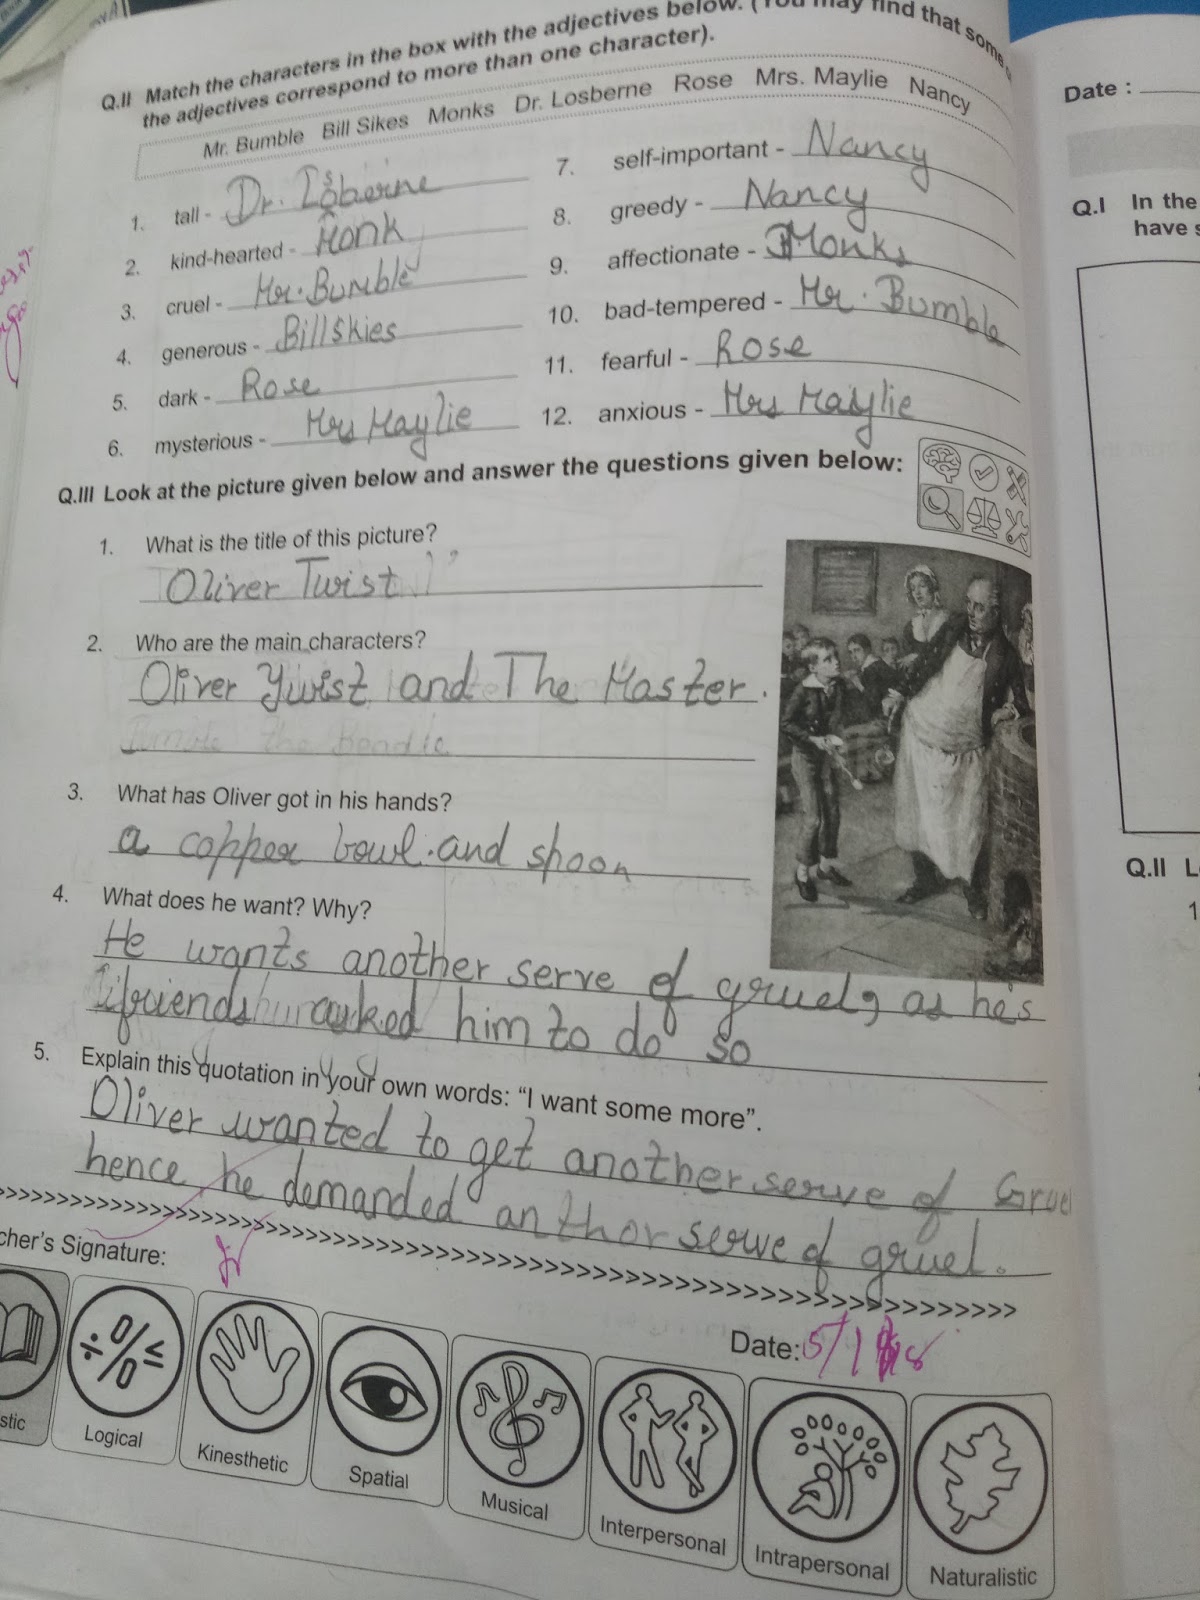 Q.II Match the characters in the box with the adjectives below. (You may find that some
the adjectives correspond to more than one character).
Mr. Bumble Bill Sikes Monks Dr. Losberne Rose Mrs. Maylie Nancy
1. tall - Dr. Losberne
2. kind-hearted - Monk
3. cruel - Mr. Bumble
4. generous - Bill Skies
5. dark - Rose
6. mysterious - Mrs Maylie
7. self-important - Nancy
8. greedy - Nancy
9. affectionate - Monks
10. bad-tempered - Mr. Bumble
11. fearful - Rose
12. anxious - Mrs Maylie
Q.III Look at the picture given below and answer the questions given below:
1. What is the title of this picture?
Oliver Twist
2. Who are the main characters?
Oliver Ywist and The Master.
the Beadle
3. What has Oliver got in his hands?
a copper bowl. and spoon
4. What does he want? Why?
He wants another serve of gruel, as he's
friends asked him to do so
5. Explain this quotation in your own words: “I want some more”.
Oliver wanted to get another serve of Gruel
hence he demanded an thor serve of gruel.
cher's Signature:
Date: 5/1
stic
Logical
Kinesthetic
Spatial
Musical
Interpersonal
Intrapersonal
Naturalistic
Date :
Q.I In the
have s
Q.II L
1